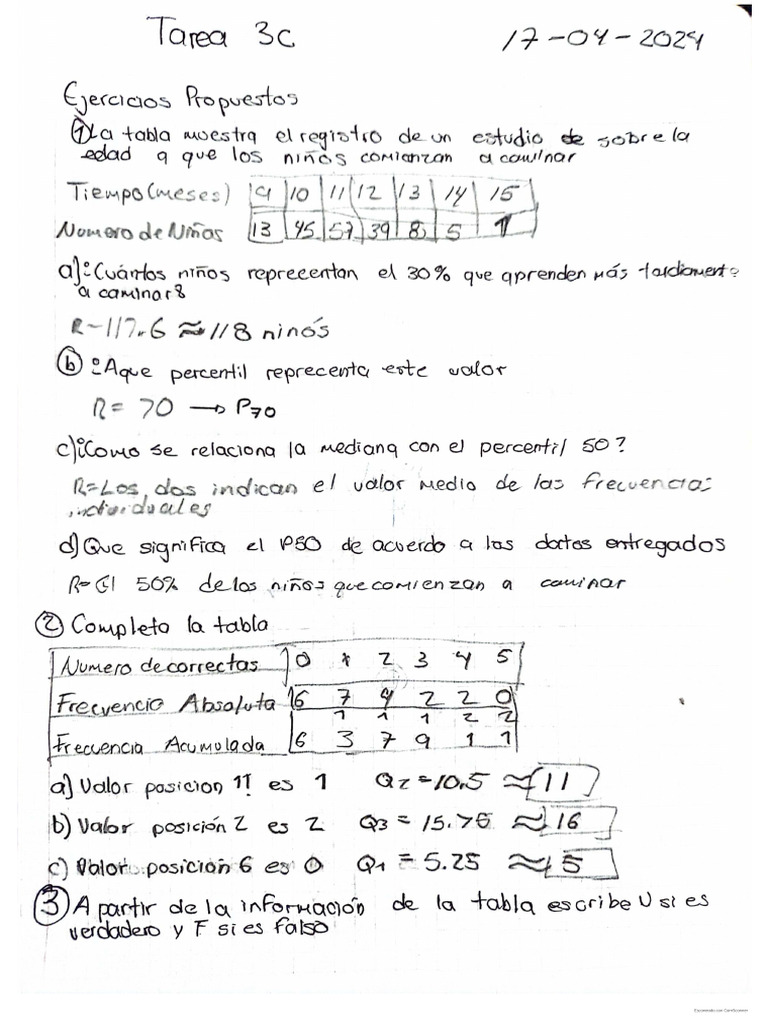 Tarea 3c 17-04-2024
Ejercicios Propuestos
① La tabla muestra el registro de un estudio de sobre la
edad a que los niños comianzan a caminar
Tiempo(meses) 9 10 11 12 13 14 15
Numero de Niñas 13 45 57 39 8 5 1
a)¿Cuántos niños reprecentan el 30% que aprenden más tardiament?
a caminar?
R-117.6 ≈ 118 ninós
ⓑ ¿A que percentil reprecenta este valor
R= 70 → P70
c)¿Como se relaciona la mediana con el percentil 50?
R=Los dos indican el valor medio de las frecuencias
individuales
d) Que significa el P50 de acuerdo a las datos entregados
R= El 50% de los niños que comienzan a caminar
② Completo la tabla
Numero de correctas 0 1 2 3 4 5
Frecuencia Absoluta 6 7 4 2 2 0
1 1 1 2 2
Frecuencia Acumulada 6 3 7 9 1 1
a) Valor posicion 11 es 1 Q2 =10.5 ≈ 11
b) Valor posición 2 es 2 Q3 = 15.75 ≈ 16
c) Valor posicion 6 es 0 Q1 = 5.25 ≈ 5
③ A partir de la información de la tabla escribe V si es
verdadero y F si es falso
Escaneado con CamScanner